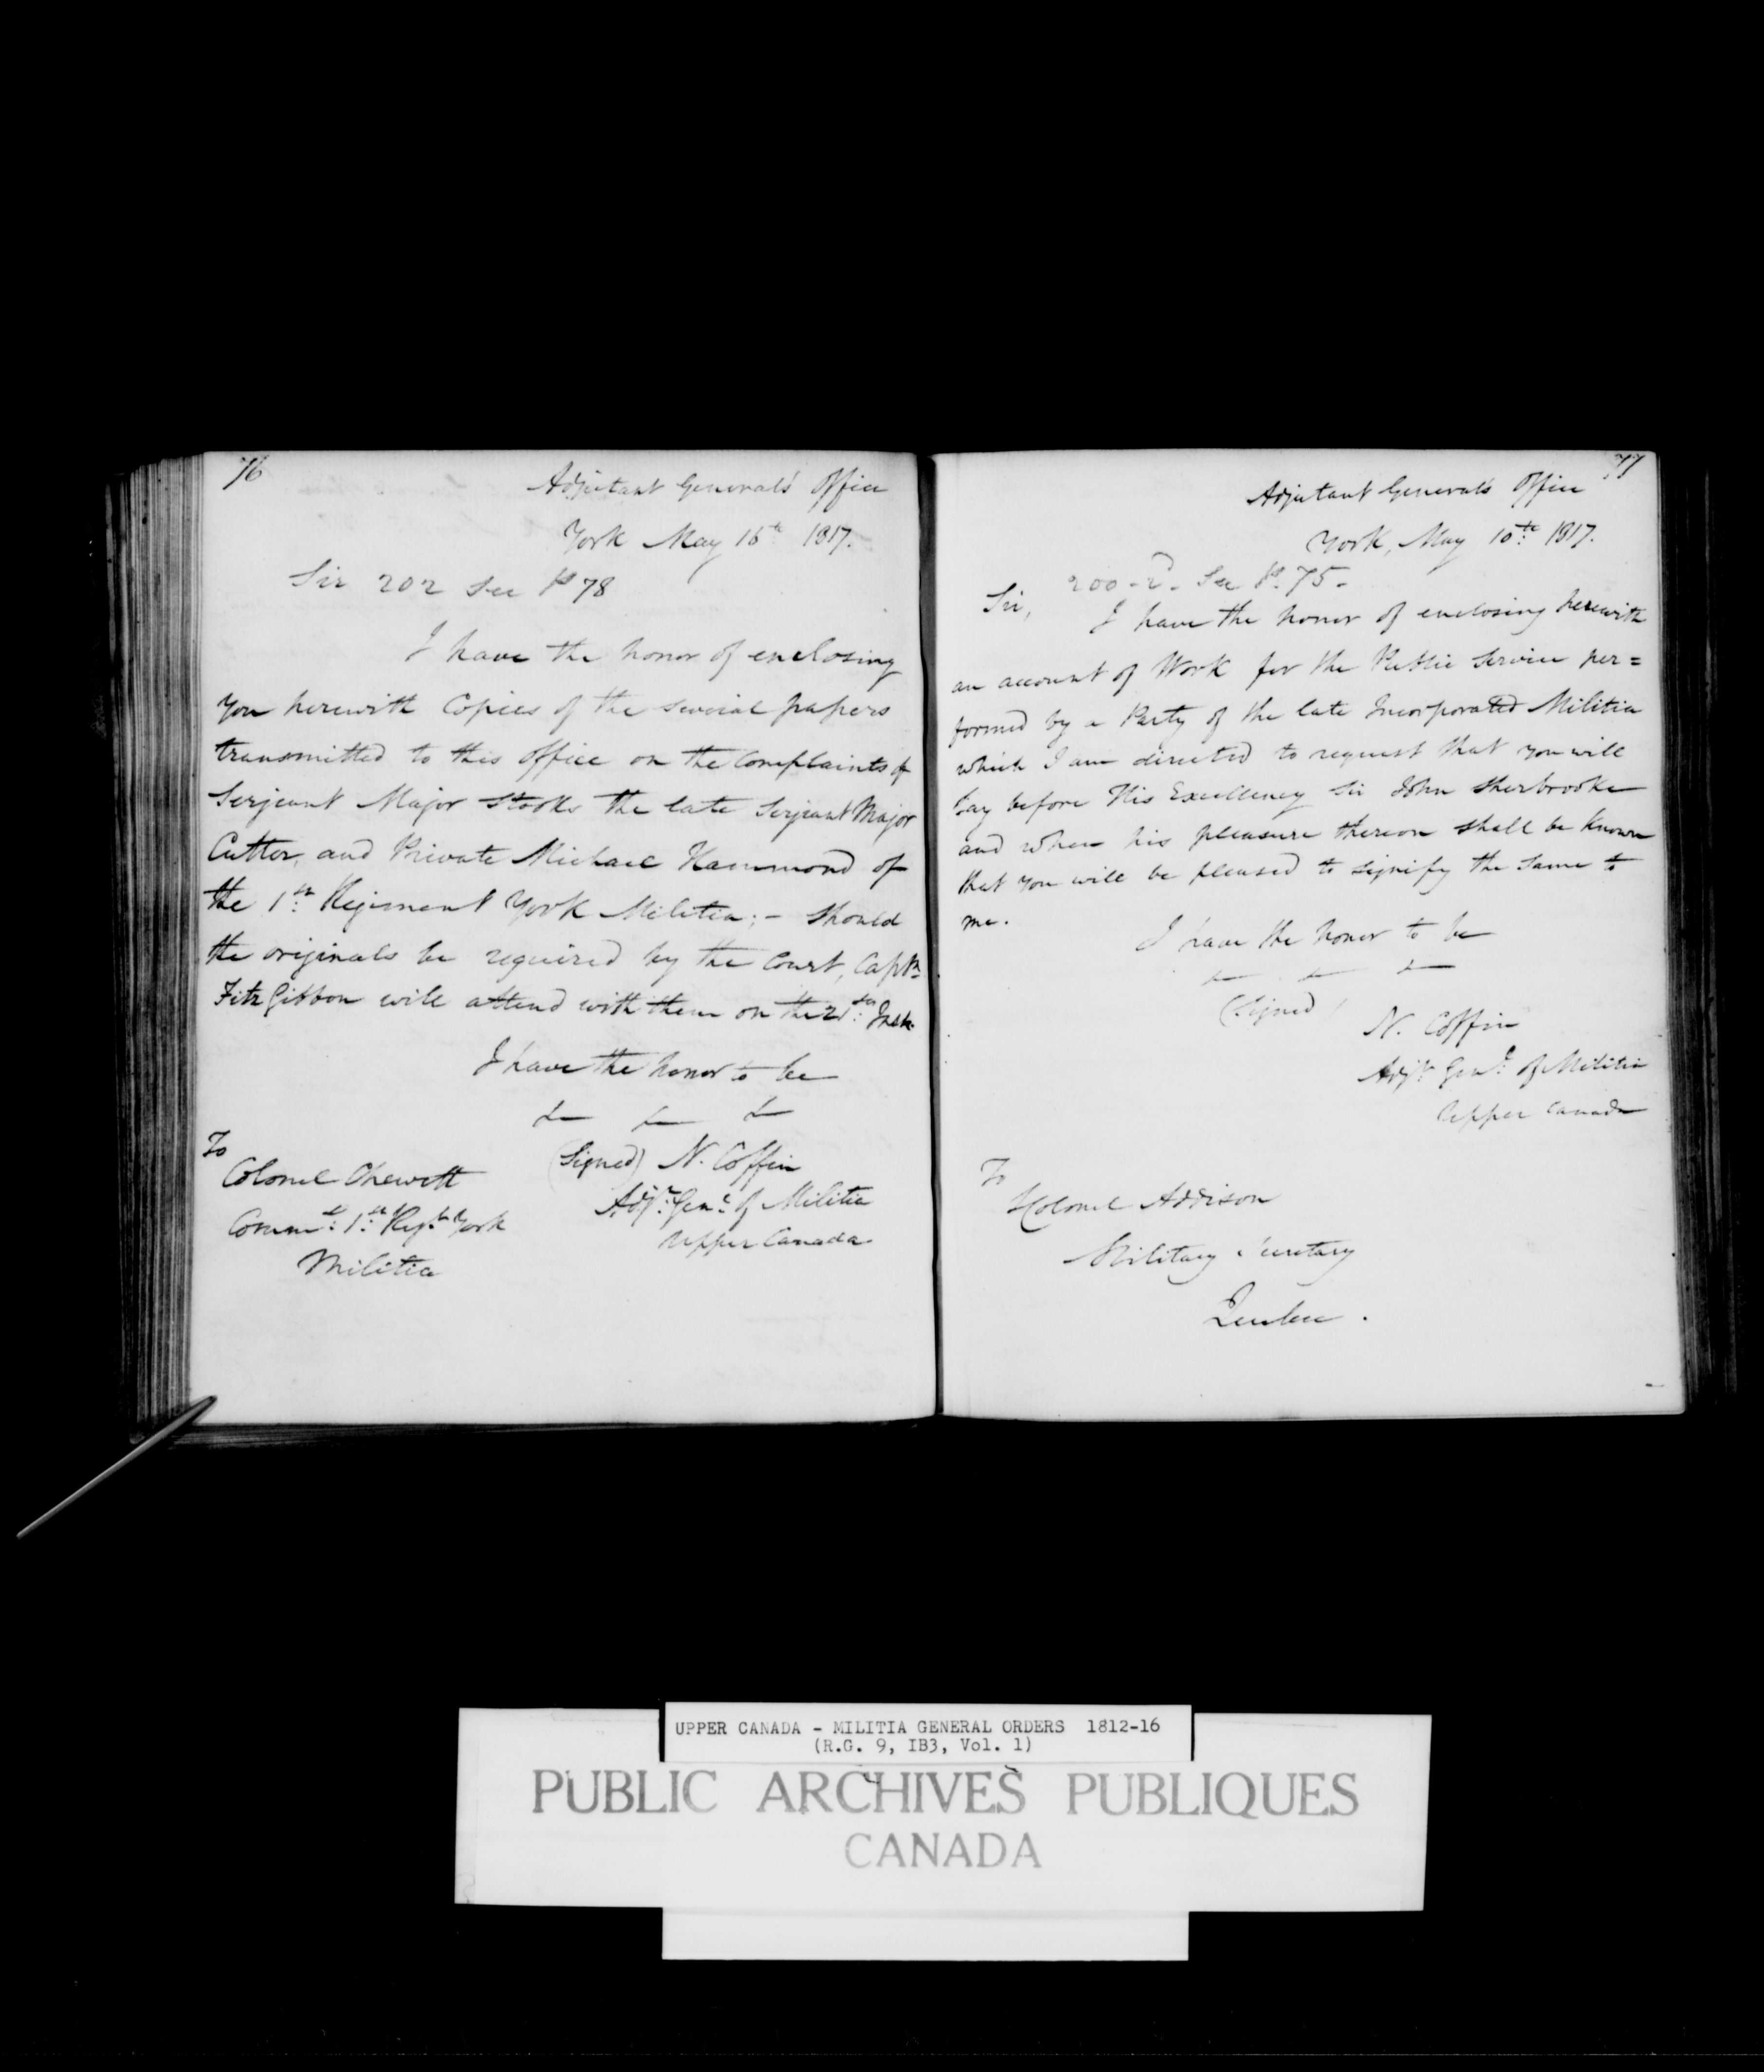 76
Adjutant General's Office
York May 16th 1817.
Sir 202 See P 78
I have the honor of enclosing
you herewith Copies of the several papers
transmitted to this office on the Complaints of
Serjeant Major Stooks the late Serjeant Major
Cutter, and Private Michael Hammond of
the 1st Regiment York Militia; - should
the originals be required by the Court, Captn
FitzGibbon will attend with them on the 21st Inst.
I have the honor to be
&c &c &c
(Signed) N. Coffin
Adjt Genl of Militia
Upper Canada
To
Colonel Chewett
Commdg 1st Regt York
Militia
77
Adjutant General's Office
York, May 10th 1817.
200-2d. See P. 75-
Sir,
I have the honor of enclosing herewith
an account of Work for the Public Service per=
formed by a Party of the late Incorporated Militia
which I am directed to request that you will
lay before His Excellency Sir John Sherbrooke
and when his pleasure thereon shall be known
that you will be pleased to signify the same to
me.
I have the honor to be
&c &c &c
(Signed)
N. Coffin
Adjt Genl of Militia
Upper Canada
To
Colonel Addison
Military Secretary
Quebec.
UPPER CANADA - MILITIA GENERAL ORDERS 1812-16
(R.G. 9, IB3, Vol. 1)
PUBLIC ARCHIVES PUBLIQUES
CANADA